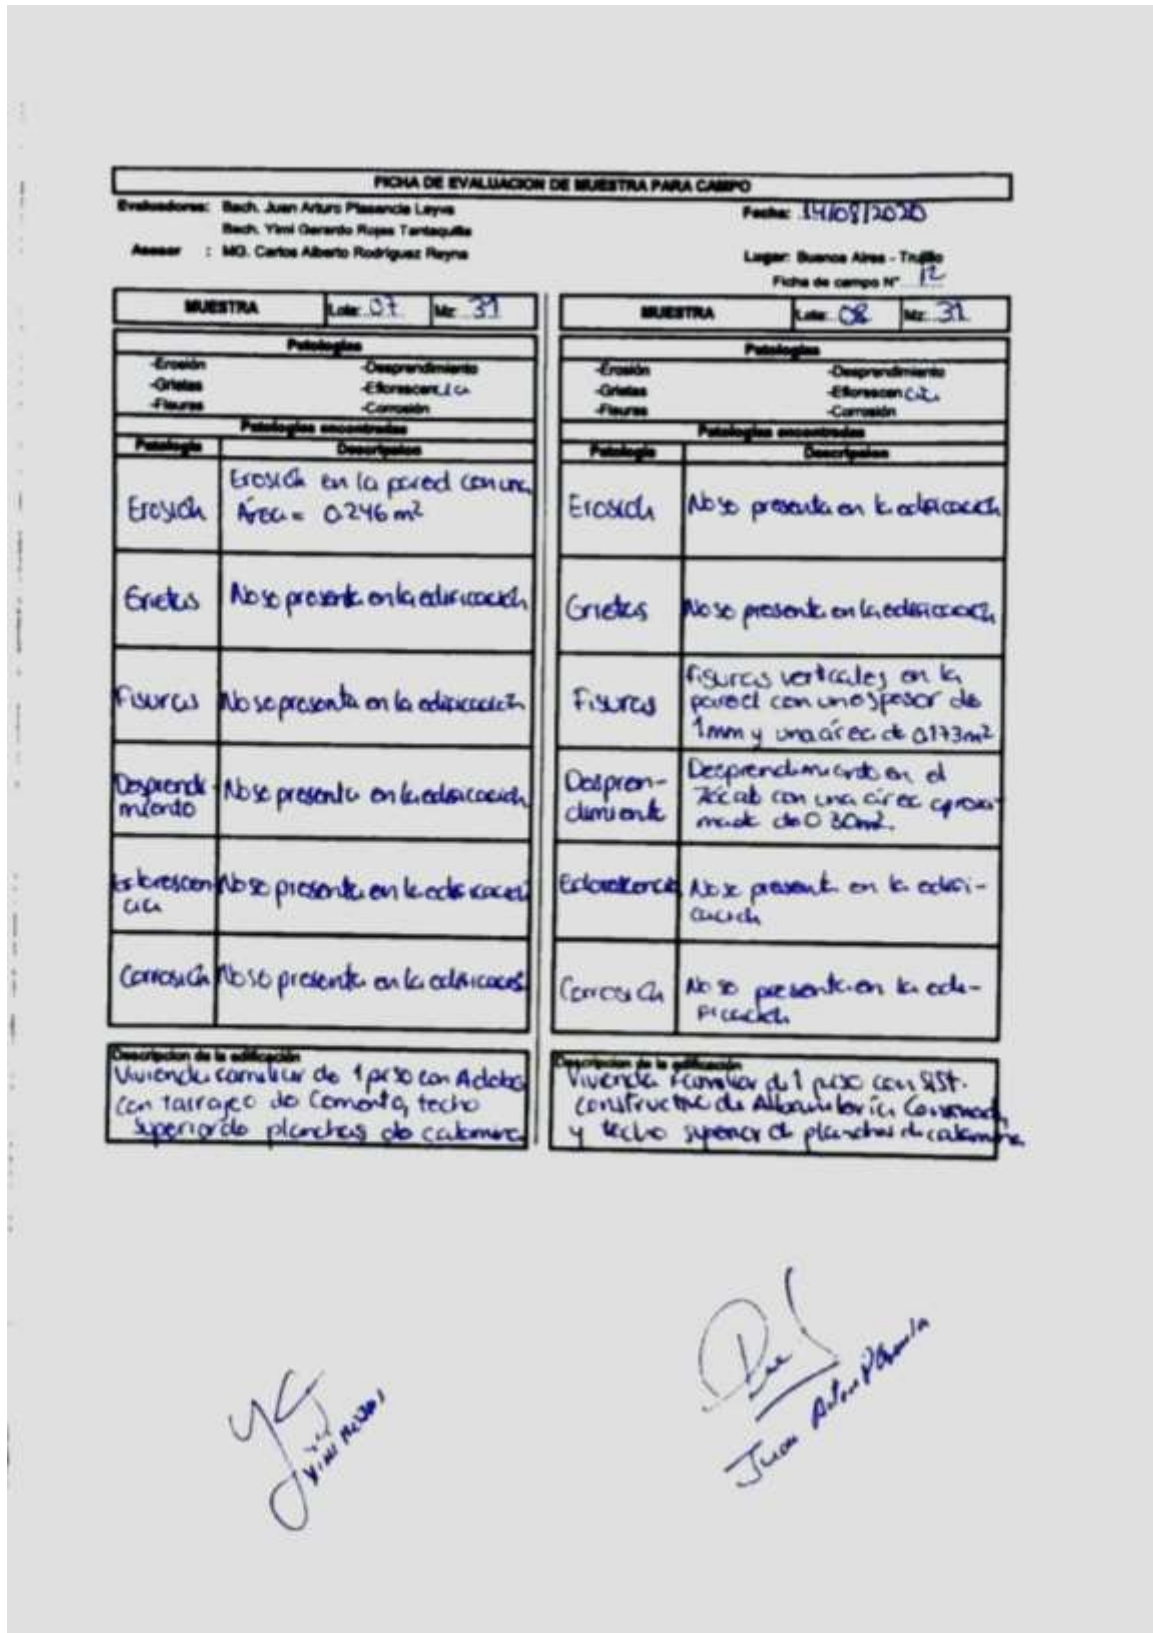 FICHA DE EVALUACION DE MUESTRA PARA CAMPO
Evaluadores: Bach. Juan Arturo Plasencia Leyva
Fecha: 14/08/2020
Bach. Yimi Gerardo Rojas Tantaquilla
Asesor : MG. Carlos Alberto Rodriguez Reyna
Lugar: Buenos Aires - Trujillo
Ficha de campo N° 12
MUESTRA Lote: 07 Mz: 31
Patologias
-Erosión -Desprendimiento
-Grietas -Eflorescencia
-Fisuras -Corrosión
Patologias encontradas
Patologia Descripcion
Erosión
Erosión en la pared con una
Área = 0.246 m²
Grietas No se presenta en la edificación
Fisuras No se presenta en la edificación
Desprendi-
miento
No se presenta en la edificación
Eflorescen
cia
No se presenta en la edificación
Corrosión No se presenta en la edificación
Descripcion de la edificación
Vivienda familiar de 1 piso con Adobe
con tarrajeo de Cemento, techo
superior de planchas de calamina
MUESTRA Lote: 08 Mz: 31
Patologias
-Erosión -Desprendimiento
-Grietas -Eflorescencia
-Fisuras -Corrosión
Patologias encontradas
Patologia Descripcion
Erosión No se presenta en la edificación
Grietas No se presenta en la edificación
Fisuras
Fisuras verticales en la
pared con un espesor de
1mm y una área de 0.173m²
Despren-
dimiento
Desprendimiento en el
con una área aproxi-
mada de 0.30m².
Eflorescencia
No se presenta en la edifi-
cación
Corrosión
No se presenta en la edi-
ficación
Descripcion de la edificación
Vivienda Familiar de 1 piso con sist.
constructivo de Albañilería Confinada
y techo superior de planchas de calamina
Juan Arturo Plasencia